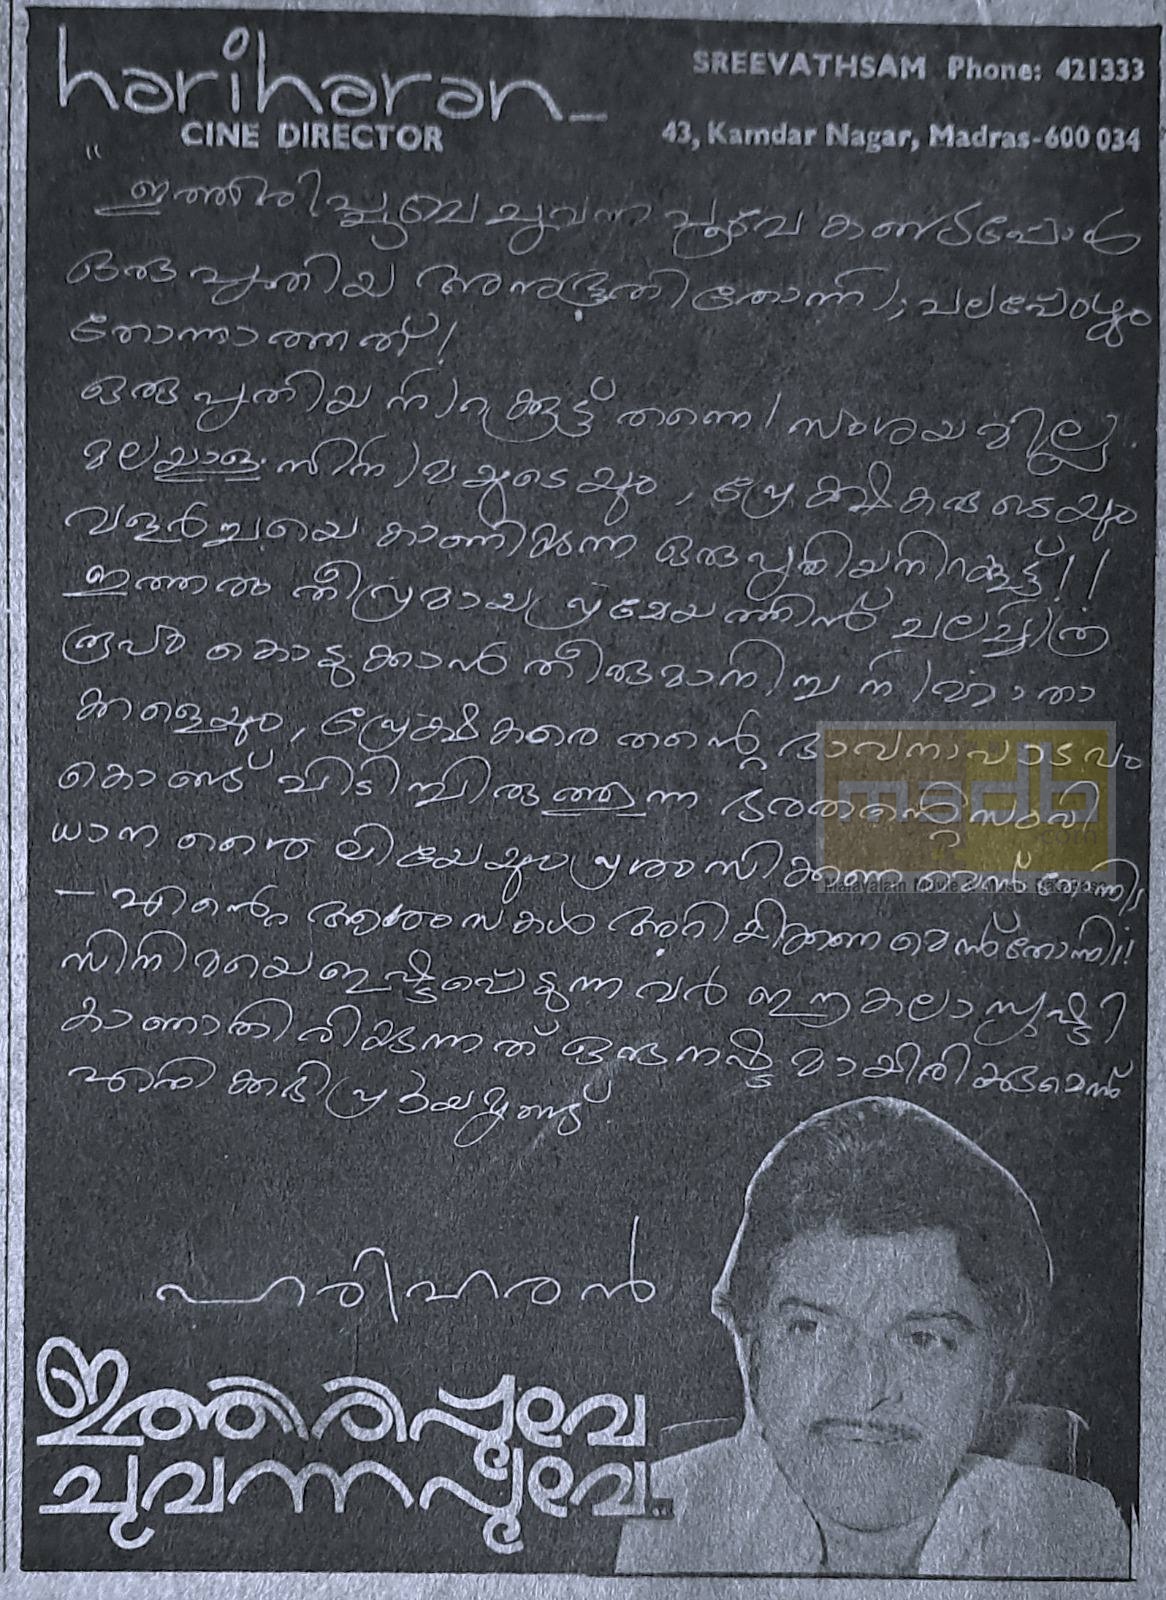 hariharan
CINE DIRECTOR
SREEVATHSAM Phone: 421333
43, Kamdar Nagar, Madras-600 034
"
ഇത്തിരിപ്പൂവേ ചുവന്ന പൂവേ കണ്ടപ്പോൾ
ഒരു പുതിയ അനുഭൂതി തോന്നി; പലപ്പോഴും
തോന്നാത്തത്!
ഒരു പുതിയ നിറക്കൂട്ട് തന്നെ! സംശയമില്ല.
മലയാള സിനിമയുടെയും, പ്രേക്ഷകരുടെയും
വളർച്ചയെ കാണിക്കുന്ന ഒരു പുതിയ നിറക്കൂട്ട്!!
ഇത്തരം തീവ്രമായ പ്രമേയത്തിന് ചലച്ചിത്ര
രൂപം കൊടുക്കാൻ തീരുമാനിച്ച നിർമ്മാതാ
ക്കളെയും, പ്രേക്ഷകരെ തന്റെ ഭാവനാപാടവം
കൊണ്ട് പിടിച്ചിരുത്തുന്ന ഭരതന്റെ സംവി
ധാന ശൈലിയേയും പ്രശംസിക്കണമെന്ന് തോന്നി;
— എന്റെ ആശംസകൾ അറിയിക്കണമെന്ന് തോന്നി!!
സിനിമയെ ഇഷ്ടപ്പെടുന്നവർ ഈ കലാസൃഷ്ടി
കാണാതിരിക്കുന്നത് ഒരു നഷ്ടമായിരിക്കുമെന്ന്
എനിക്കഭിപ്രായമുണ്ട്
ഹരിഹരൻ
ഇത്തിരിപ്പൂവേ
ചുവന്നപൂവേ...
m3db